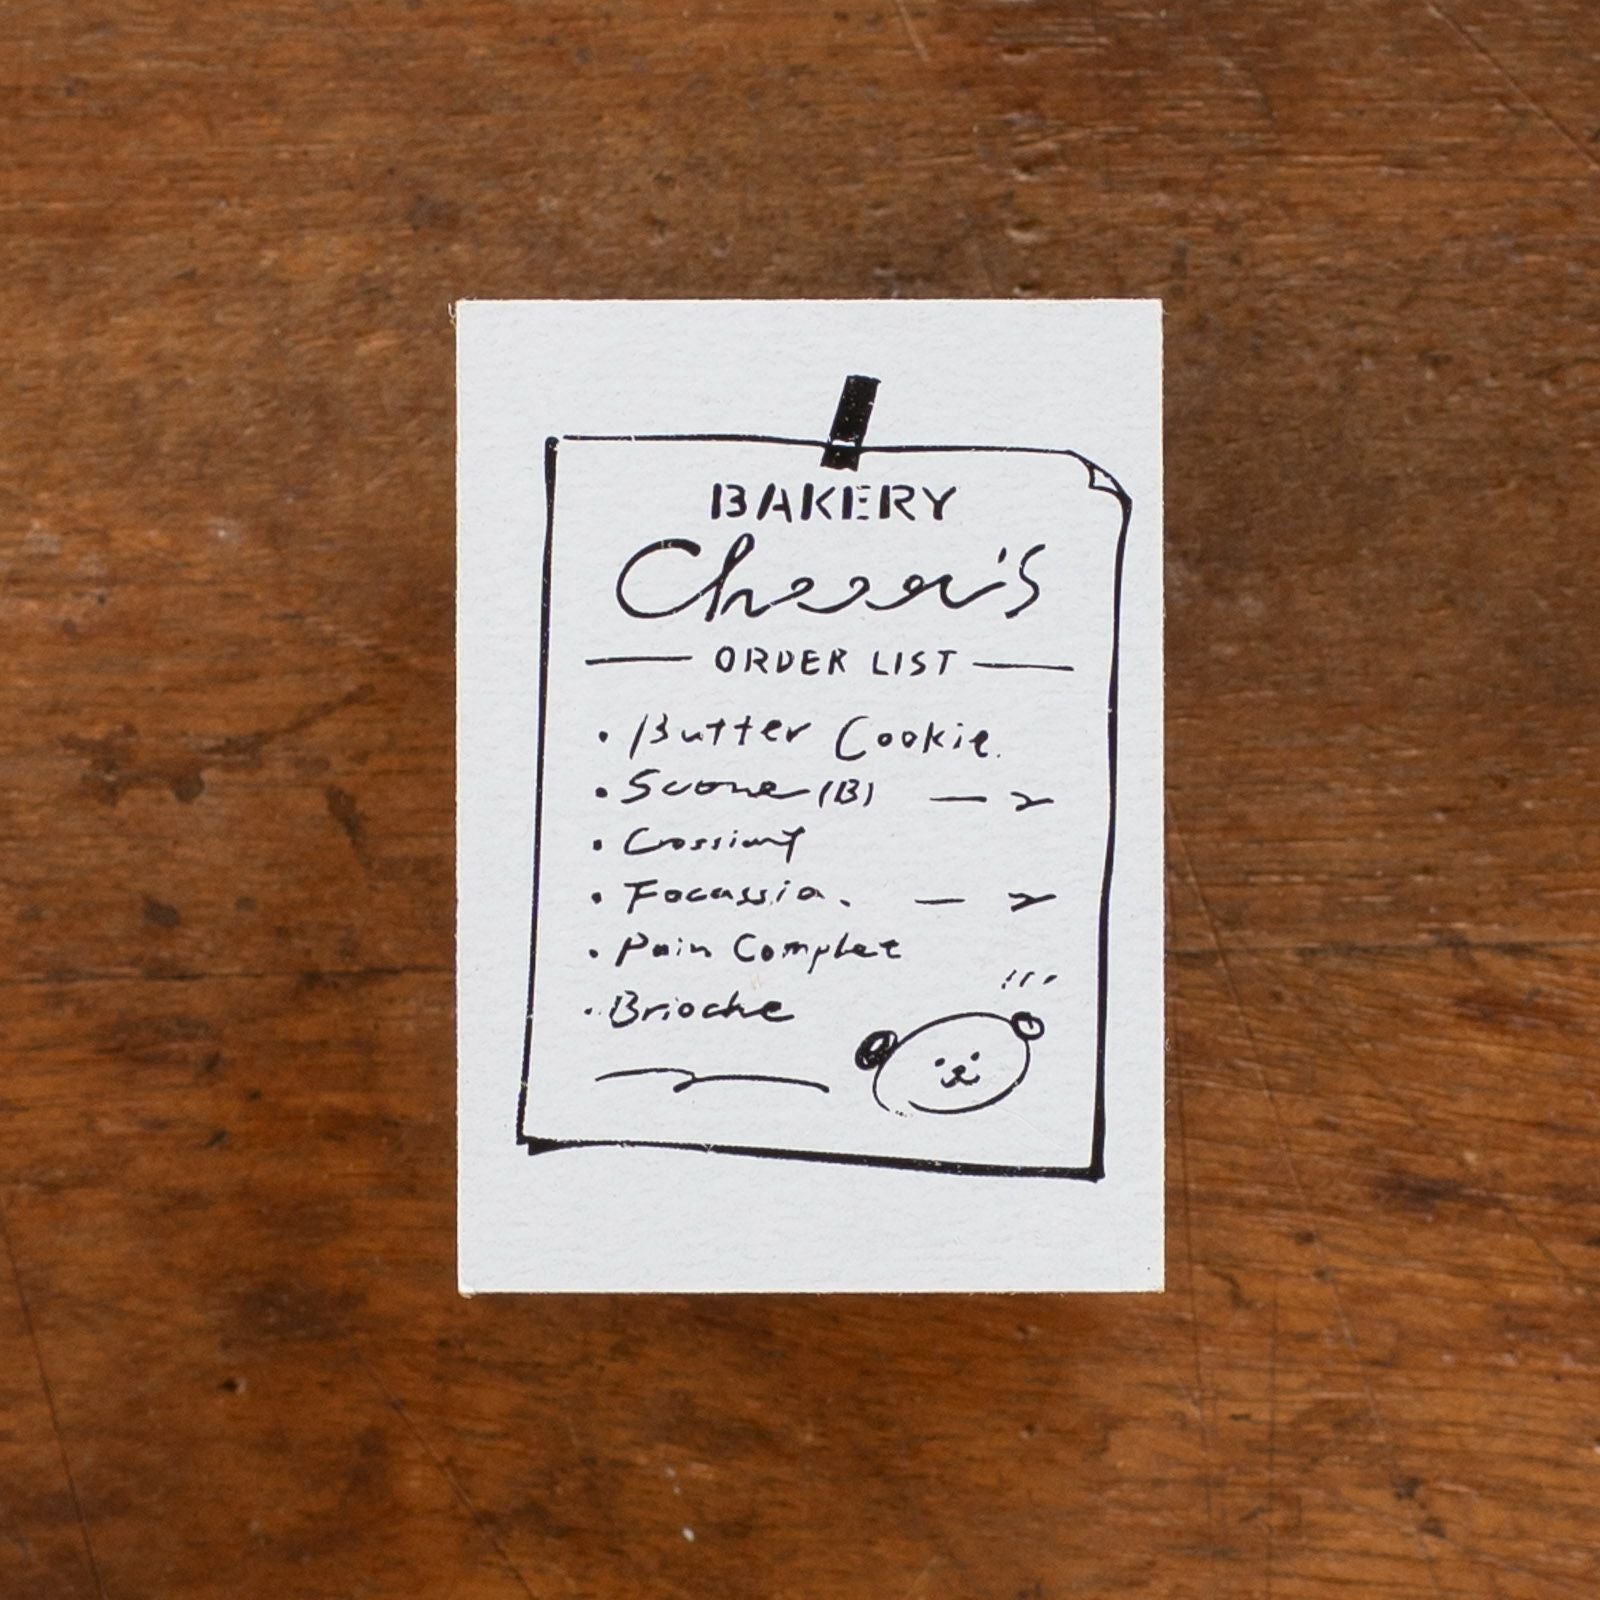 BAKERY
Chooon's
ORDER LIST
• Butter Cookie.
• Scone (B) — 2
• Crossiant
• Focassia. — 2
• Pain Complet
• Brioche